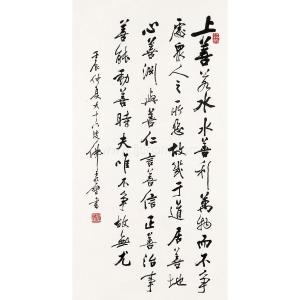 上善若水水善利萬物而不爭
處衆人之所惡故幾于道居善地
心善淵與善仁言善信正善治事
善能動善時夫唯不爭故無尤
壬辰仲夏書